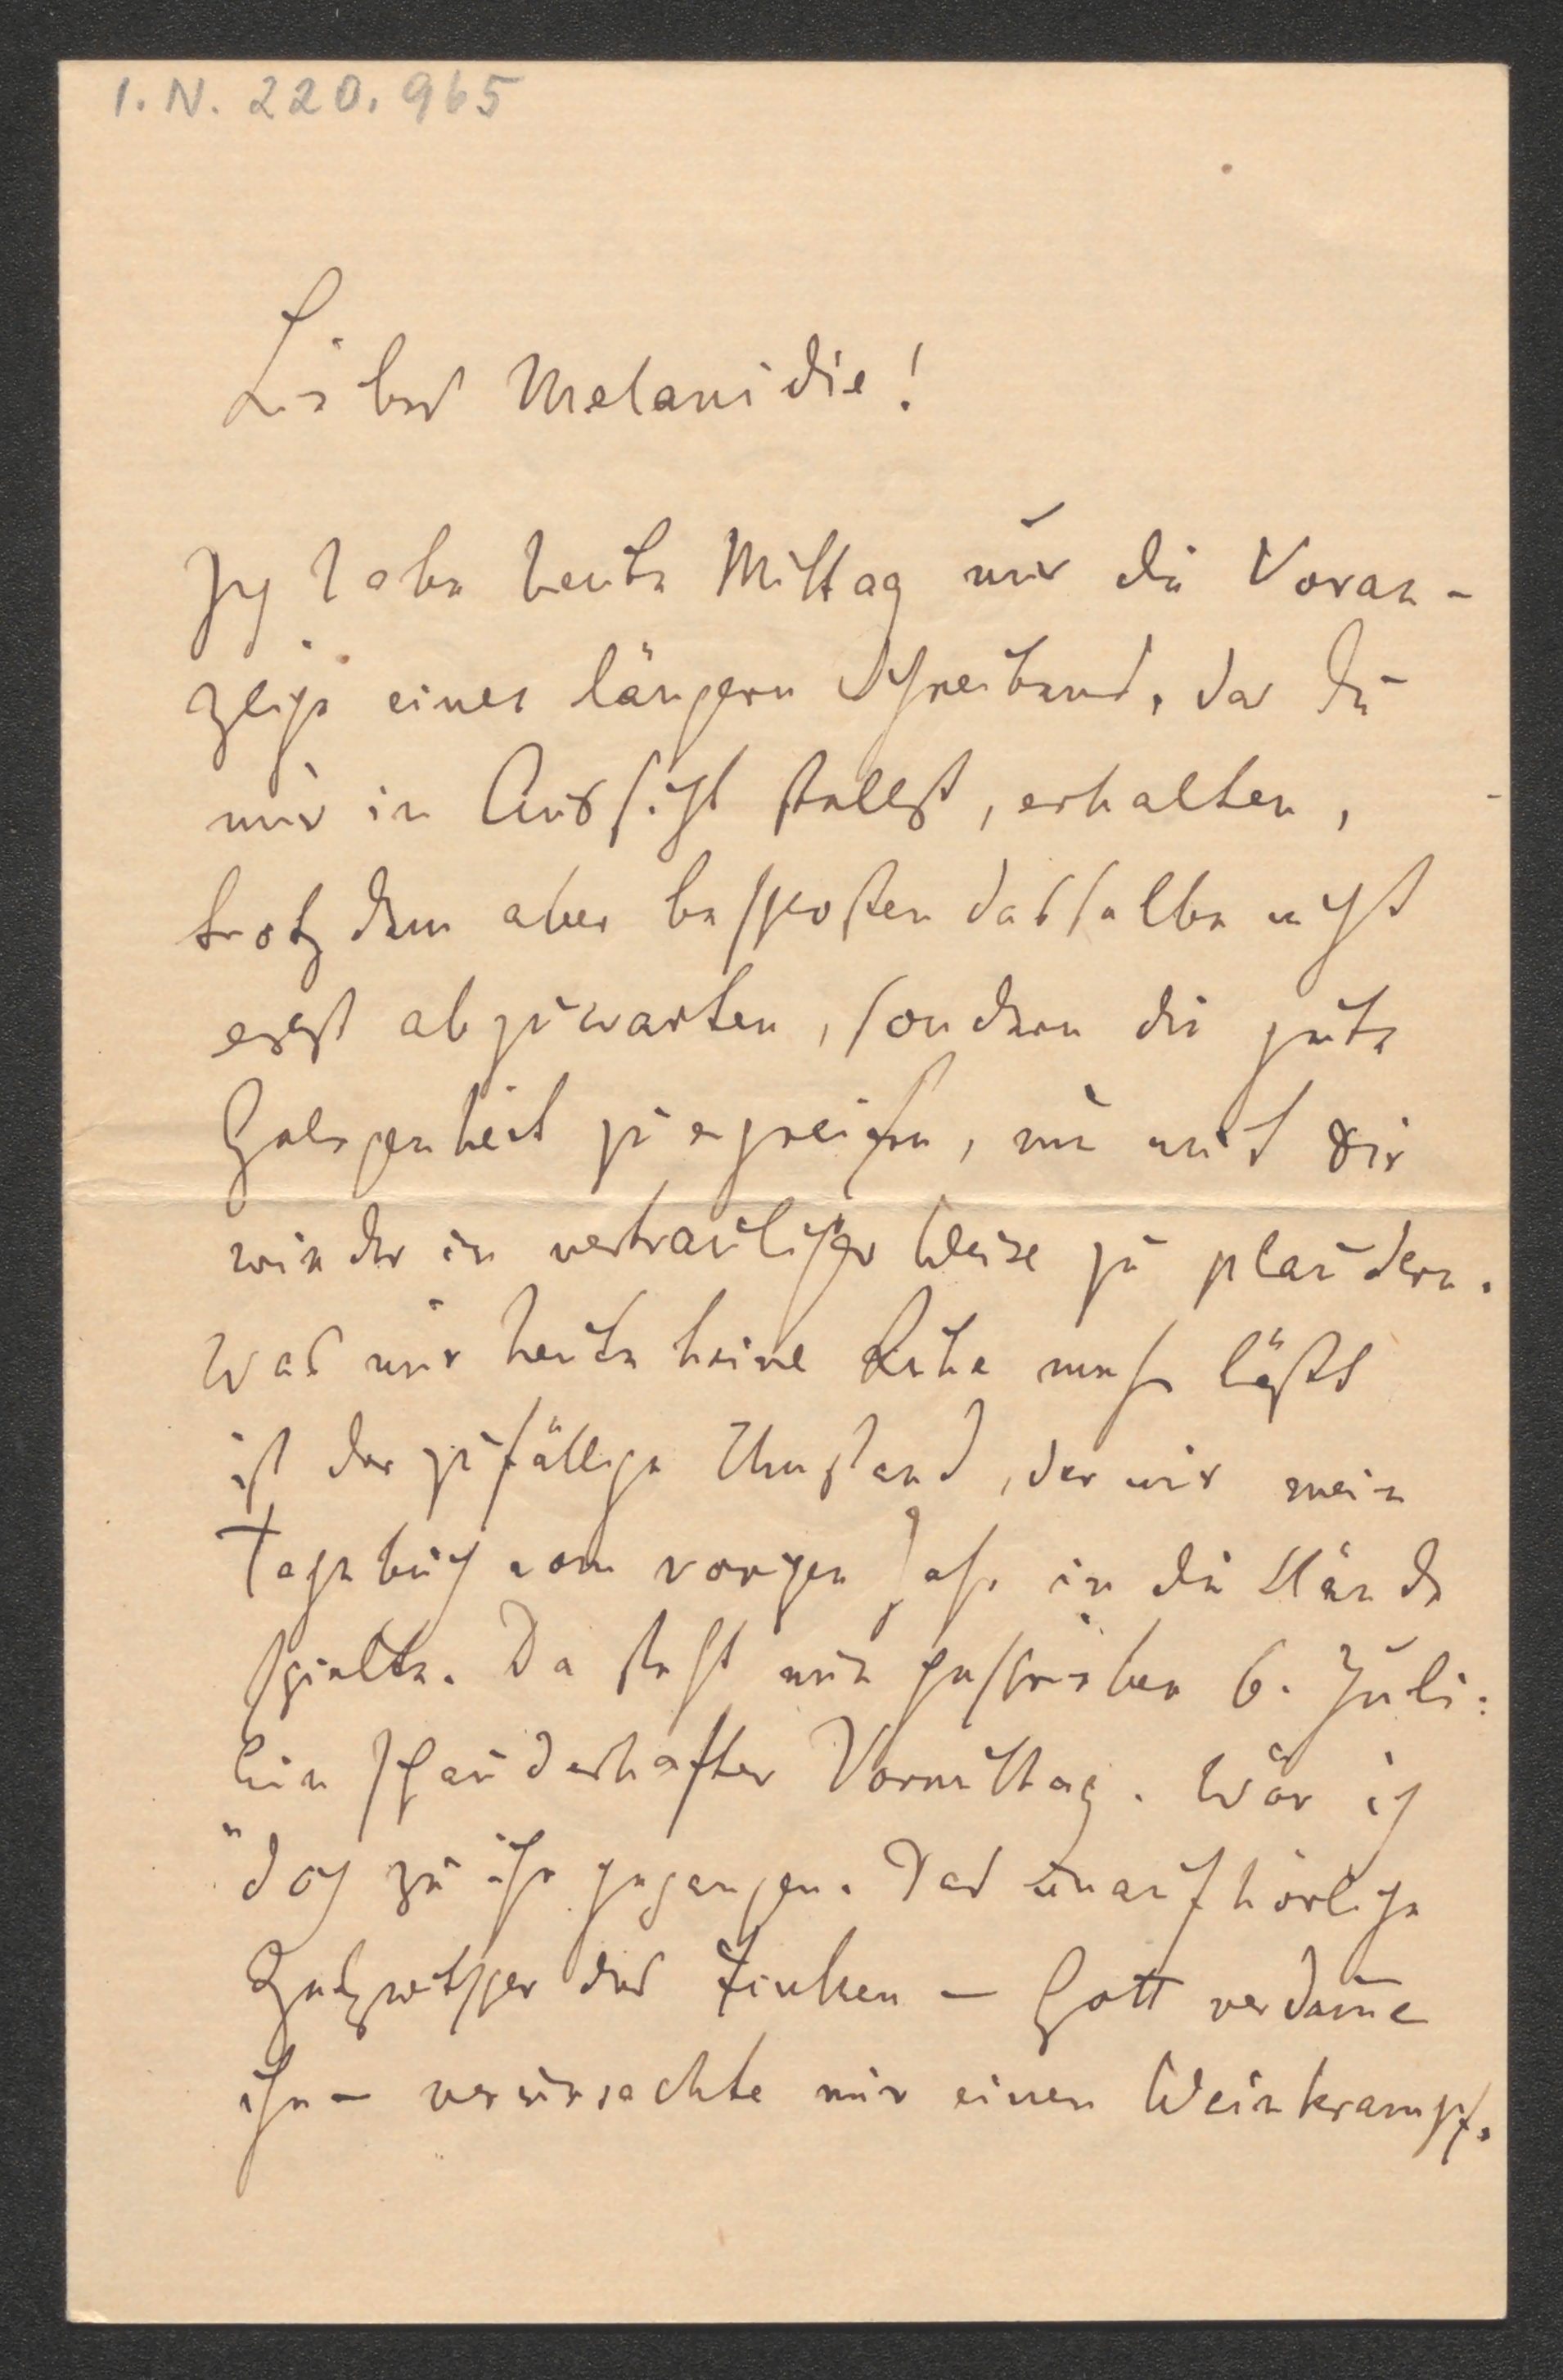 I. N. 220.965
Liebes Melanidie!
Ich habe heute Mittag nur die Voran-
zeige eines längern Schreibens, das Du
mir in Aussicht stellst, erhalten,
trotzdem aber beschlossen dasselbe nicht
erst abzuwarten, sondern die gute
Gelegenheit zu ergreifen, um mit Dir
wieder in vertraulicher Weise zu plaudern.
Was mir heute keine Ruhe mehr läßt
ist der zufällige Umstand, der mir mein
Tagebuch vom vorigen Jahr in die Hände
spielte. Da steht nun geschrieben 6. Juli:
Ein schauderhafter Vormittag. Wär ich
"doch zu ihr gegangen. Das unaufhörliche
Gezwitscher des Finken — Gott verdam̄e
ihn — verursachte mir einen Weinkrampf.